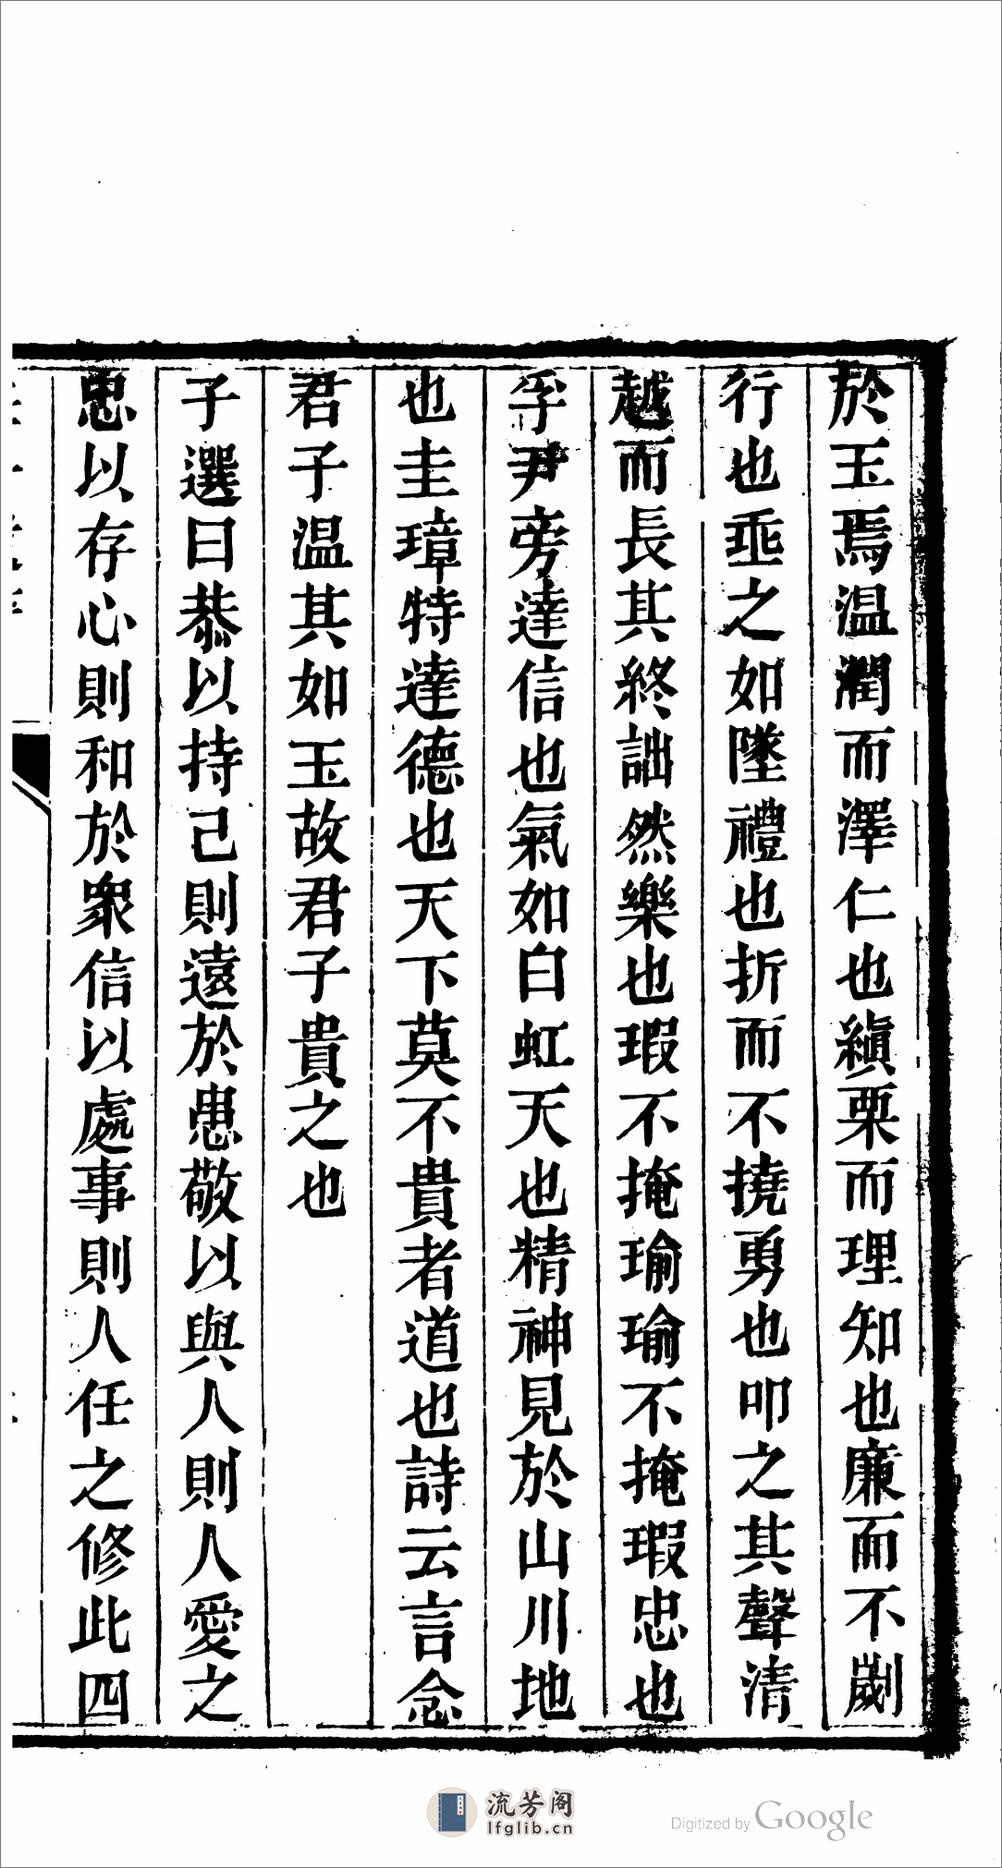 於玉焉温潤而澤仁也縝栗而理知也廉而不劌
行也垂之如墜禮也折而不撓勇也叩之其聲清
越而長其終詘然樂也瑕不掩瑜瑜不掩瑕忠也
孚尹旁達信也氣如白虹天也精神見於山川地
也圭璋特達德也天下莫不貴者道也詩云言念
君子温其如玉故君子貴之也
子選曰恭以持己則遠於患敬以與人則人愛之
忠以存心則和於衆信以處事則人任之修此四
流芳阁
lfglib.cn
Digitized by Google